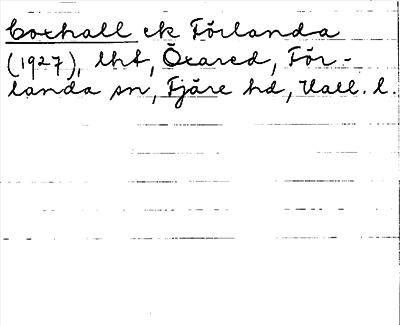 Coxhall ek Förlanda
(1927), lht, Öxared, För-
landa sn, Fjäre hd, Hall. l.